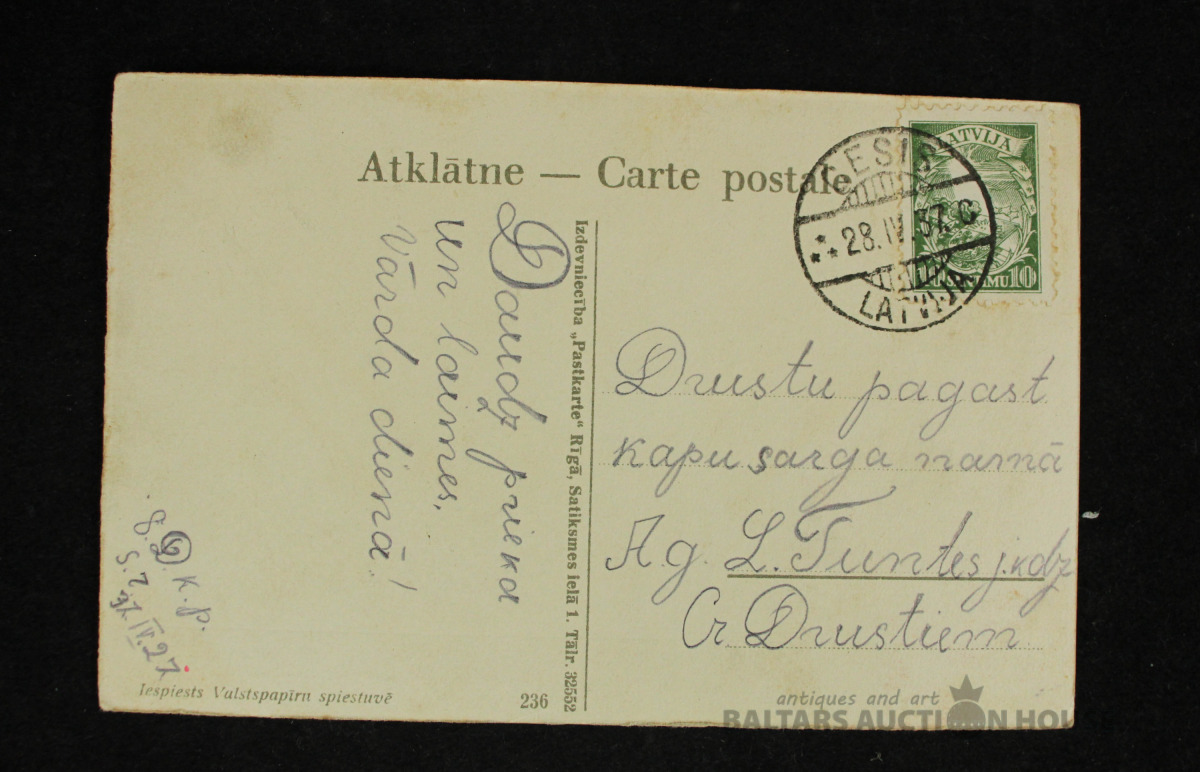 Atklātne — Carte postale
CESIS
28.IV.37. C
LATVIJA
LATVIJA
10 10
Daudz prieka
un laimes,
Vārda dienā!
K. p.
37.IV.27
Izdevniecība „Pastkarte“ Rīgā, Satiksmes ielā 1. Tālr. 32552
Drustu pagast
kapu sarga namā
Ag. L. Tuntes j.kdz
Cr Drustiem
Iespiests Valstspapīru spiestuvē
236
antiques and art
BALTARS AUCTION HOU